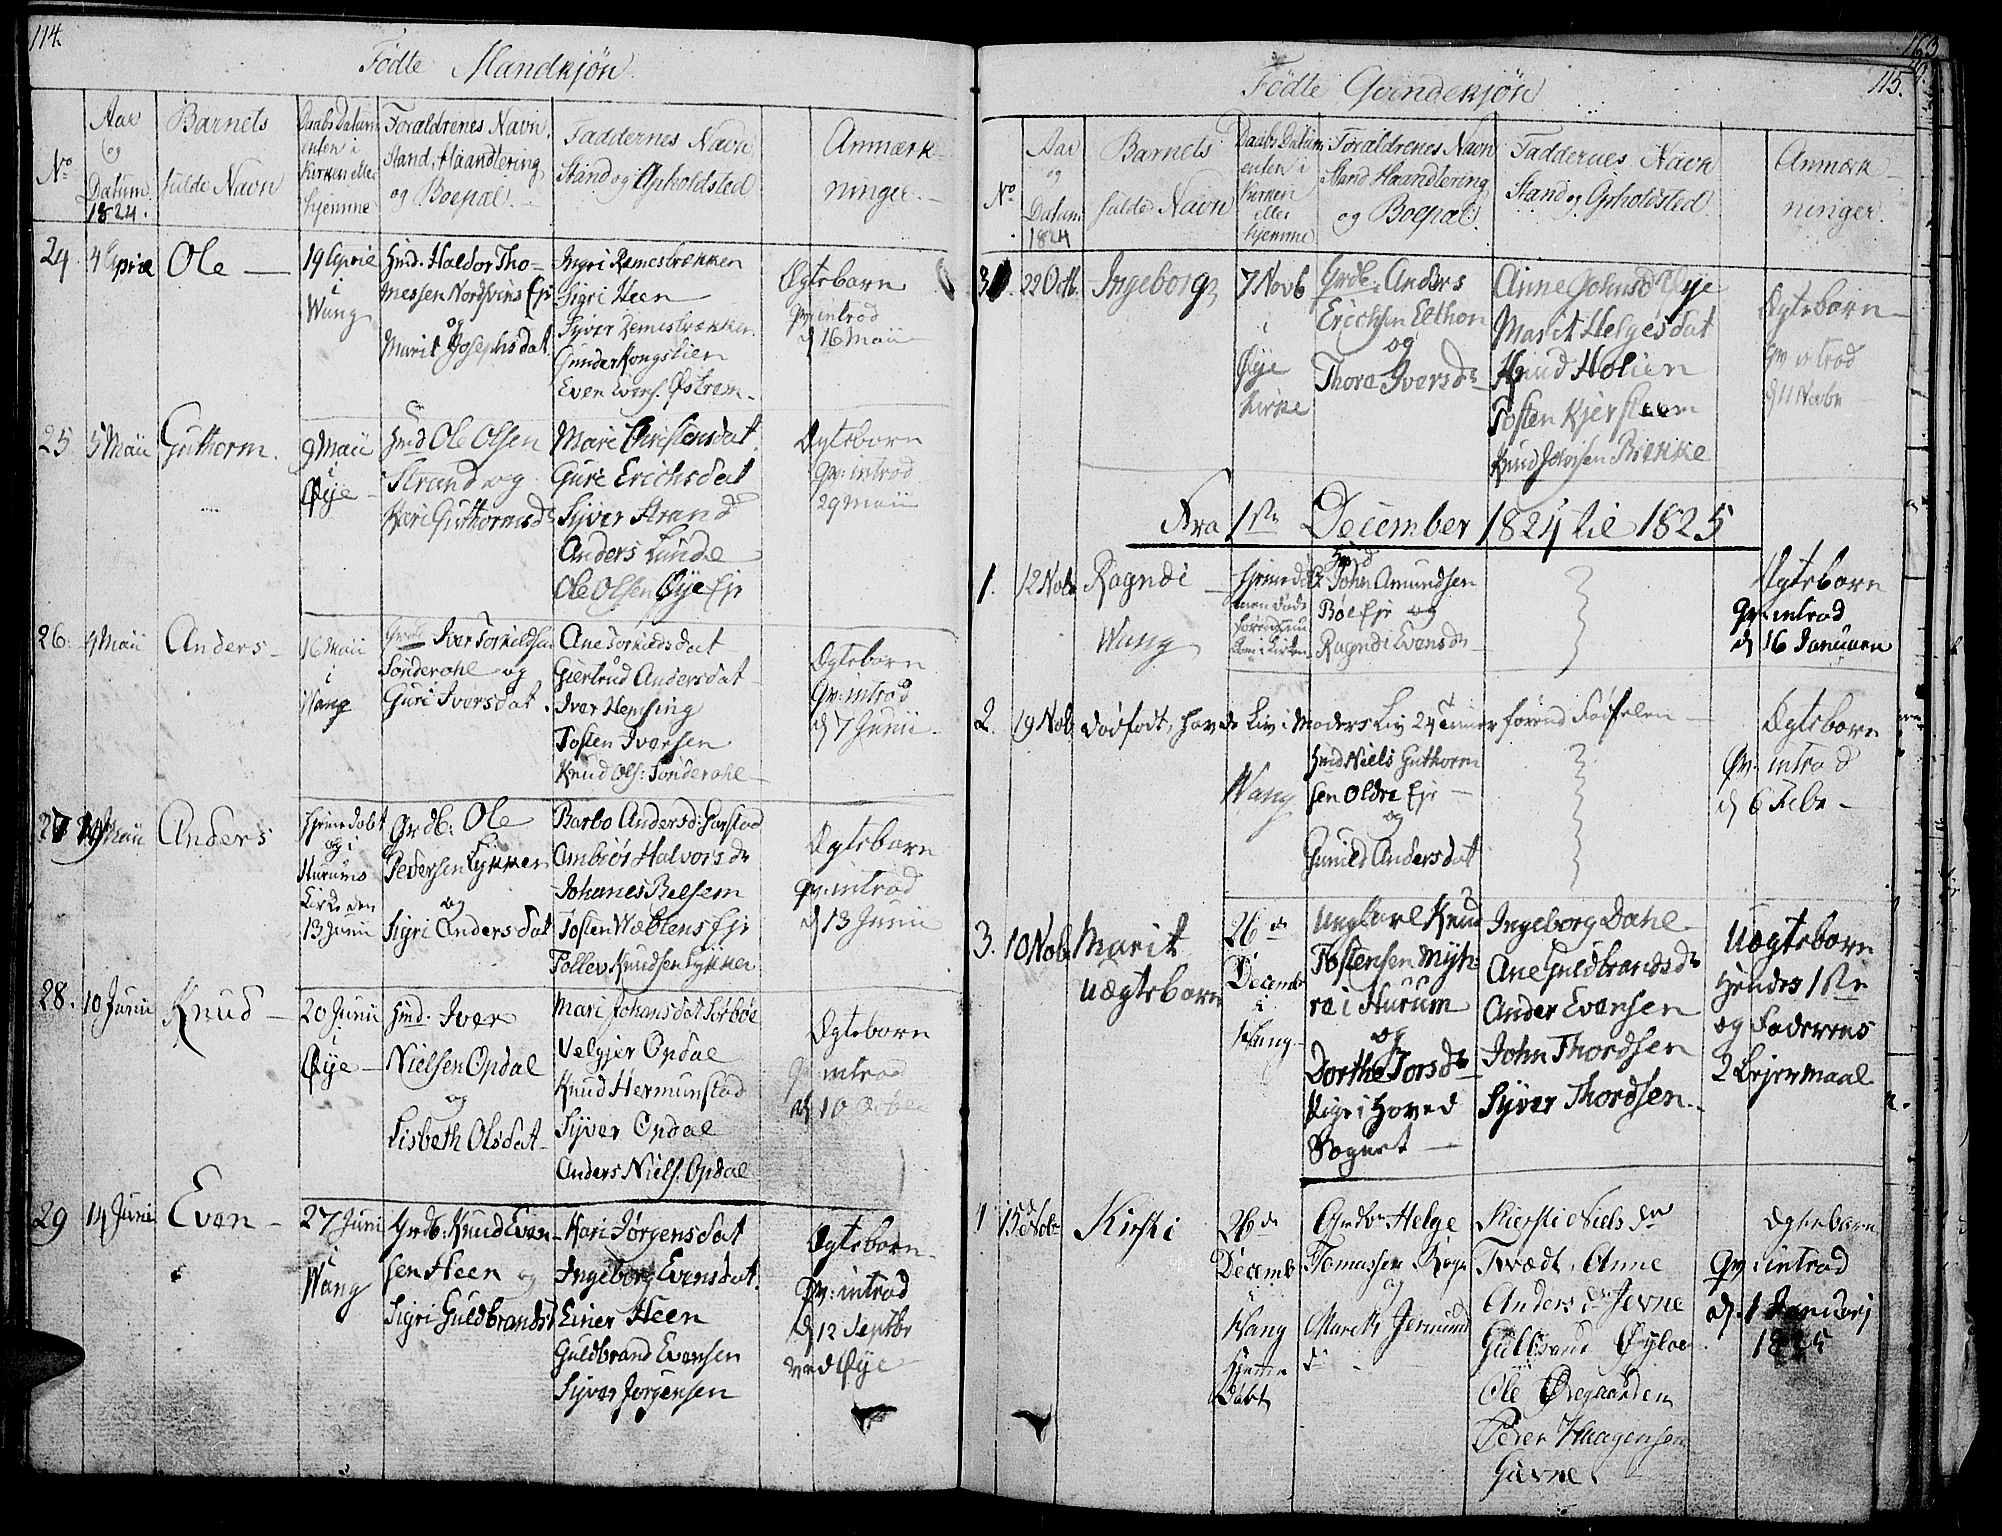 114.
Födte Mandkjön.
No
Aar
og
Datum
1824.
Barnets
fulde Navn
Daabs Datum
enten i
Kirken eller
hjemme
Foraldrenes Navn,
Stand, Haandtering
og Boepæl.
Faddernes Navn
Stand og Opholdsted.
Anmærk-
ninger.
24.
4 April
Ole
19 April
i
Wang
Hmd. Haldor Tho-
messen Nordsvins Ejr
og
Marit Josephsdat.
Ingri Remesbrækken
Sigri Heen
Syver Remesbrækken.
Gunder Kongslien
Even Evens. Østrem.
Ægtebarn
Qv: introd
d 16 Maii
25.
5 Maii
Guthorm.
9 Maii
i
Øye
Hmd Ole Olsen
Strand og
Kari Guthormsdr
Mari Christensdat.
Guri Erichsdat
Syver Strand
Anders Lunde
Ole Olsen Øye Ejr
Ægtebarn
Qv: introd
29 Maii
26.
4 Maii
Anders
16 Maii
i
Wang
Grdb Iver Torkildsen
Sönderohl og
Guri Iversdat.
Ane Torkildsdat
Giertrud Andersdat
Iver Hemsing
Tosten Iversen
Knud Ols: Sönderohl
Ægtebarn
Qv: introd
d 7 Junii
27
19 Maii
Anders
Hjemedöbt
og i
Hurums
Kirke den
13 Junii
Grdb: Ole
Pedersen Lykken
og
Sigri Andersdat
Barbo Andersd: Harstad
Ambrör Halvorsdr
Johanes Belsem
Tosten Wæblens Ejr
Tollev Knudsen Lykken
Ægtebarn
qv: introd
d 13 Junii
28.
10 Junii
Knud
20 Junii
i
Øye
Hmd. Iver
Nielsen Opdal
og
Lisbeth Olsdat
Mari Johansdat Sörböe
Velgjer Opdal
Knud Hermunstad
Syver Opdal
Anders Niels. Opdal
Ægtebarn
Qv introd
d 10 Octbr
29
14 Juni
Even
27 Juni
i
Wang
Grdb: Knud Even-
sen Heen og
Sigri Guldbrandsd
Kari Jörgensdat
Ingeborg Evensdat.
Einer Heen
Guldbrand Evensen
Syver Jörgensen
Ægtebarn
Qv: introd
d 12 Septbr
ved Øye
163
115.
Födte Qvindekjön
No
Aar
og
Datum
1824
Barnets
fulde Navn
Daabs Datum
enten i
Kirken
eller
hjemme
Foraldrenes Navn
Stand Haandtering
og Boepæl.
Faddernes Navn
Stand og Opholdsted.
Anmærk-
ninger.
22 Octb.
Ingeborg
7 Novb
i
Øye
Kirke
Grdb. Anders
Erichsen Elthon
og
Thora Iversdr
Anne Johnsd Øye
Marit Helgesdat
Knud Holien
Tosten Kjersteen
Knud Iversen Brekke
Ægtebarn
Qv introd
d 11 Novbr
Fra 1ste December 1824 til 1825
1.
12 Novbr
Ragndi
Wang
Hjemedöbt
men döde
forend
kom i Kirken
Hmd
John Amundsen
Böe Ejr og
Ragndi Evensdr
Ægtebarn
Qv. introd
d 16 Januarii
2.
19 Novb.
Dödfödt, havde Liv i Moders Liv 24 Timer förend Födselen
Wang
Hmd Niels Guthorm
sen Oldre Ejr
og
Gunild Andersdat
Ægtebarn
Qv: introd
d 6 Febr
3.
10 Novb.
Marit
uægtebarn
26 de
Decembr
i
Wang
Ungkarl Knud
Tostensen Myh-
re i Hurum
og
Dorthe Torsdr
Qigr i Hoved
Sognet
Ingeborg Dahl
Ane Guldbrandsdr
Ander Evensen
John Thordsen
Syver Thordsen.
Uægtebarn
Hendes 1ste
og Faderens
2 Lejermaal
4
15 Novbr
Kirsti
26 de
Decemb
Wang
hjemme
döbt
Grdbr Helge
Tomassen
og
Marith Jermund
dr
Kiersti Nielsdr
Kvædt, Anne
Andersdr Jevne
Gulbrand Øyloe
Ole Øregaarden
Peder Haagensen
Gievne.
Ægtebarn
Qv: introd
d. 1 Januarj
1825